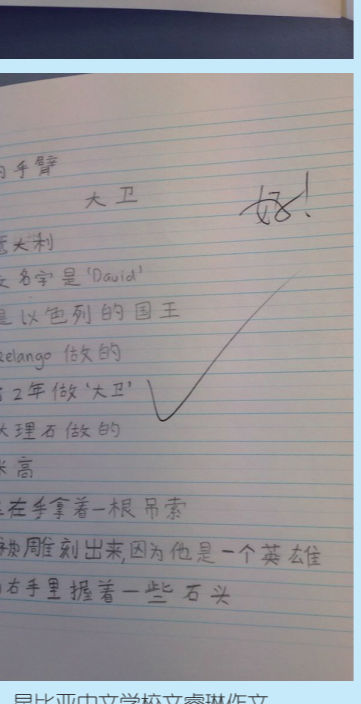 手臂
大卫
好!
大利
名字是'David'
是以色列的国王
elango 做的
2年做'大卫'
大理石做的
米高
在手拿着一根吊索
被雕刻出来,因为他是一个英雄
右手里握着一些石头
昆比亚中文学校文睿琳作文